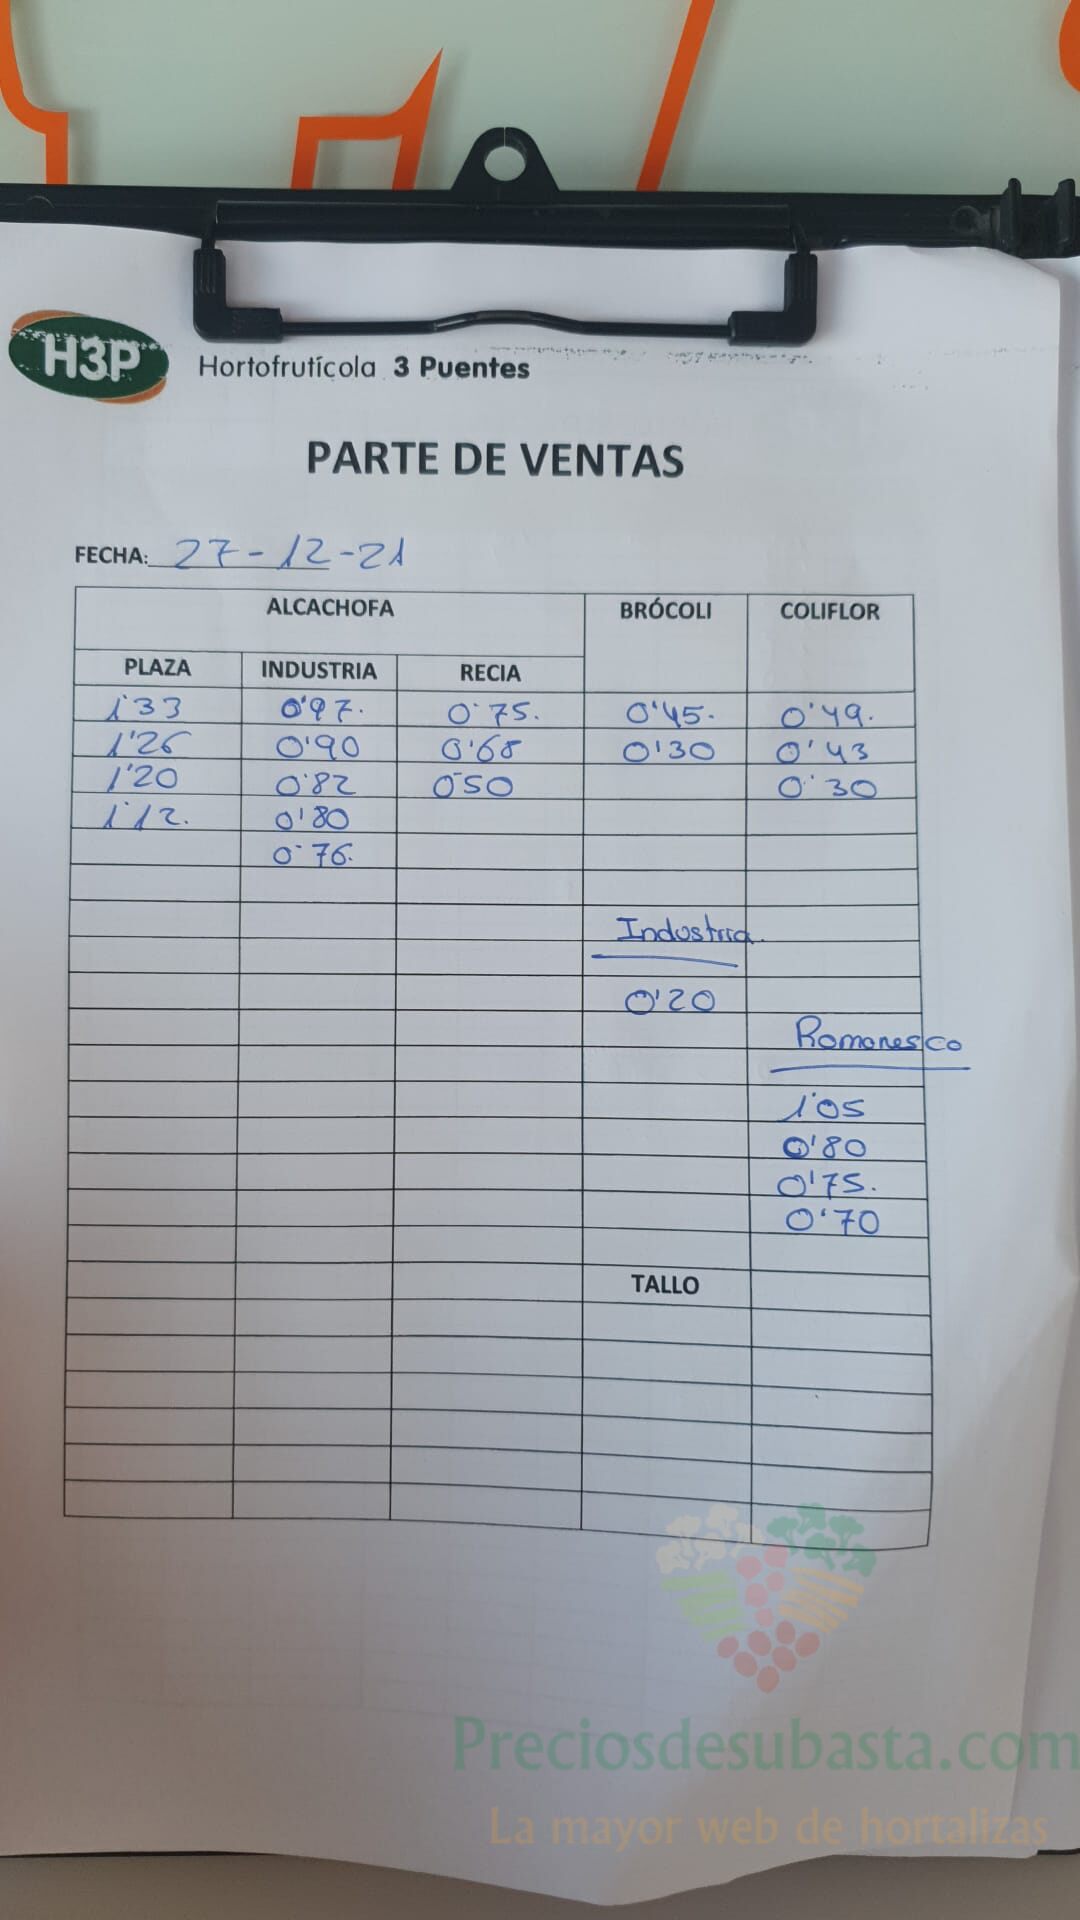 H3P Hortofrutícola 3 Puentes
PARTE DE VENTAS
FECHA: 27-12-21
ALCACHOFA BRÓCOLI COLIFLOR
PLAZA INDUSTRIA RECIA
1'33 0'97. 0'75. 0'45. 0'49.
1'26 0'90 0'68 0'30 0'43
1'20 0'82 0'50 0'30
1'12. 0'80
0'76.
Industria.
0'20
Romanesco
1'05
0'80
0'75.
0'70
TALLO
Preciosdesubasta.com
La mayor web de hortalizas